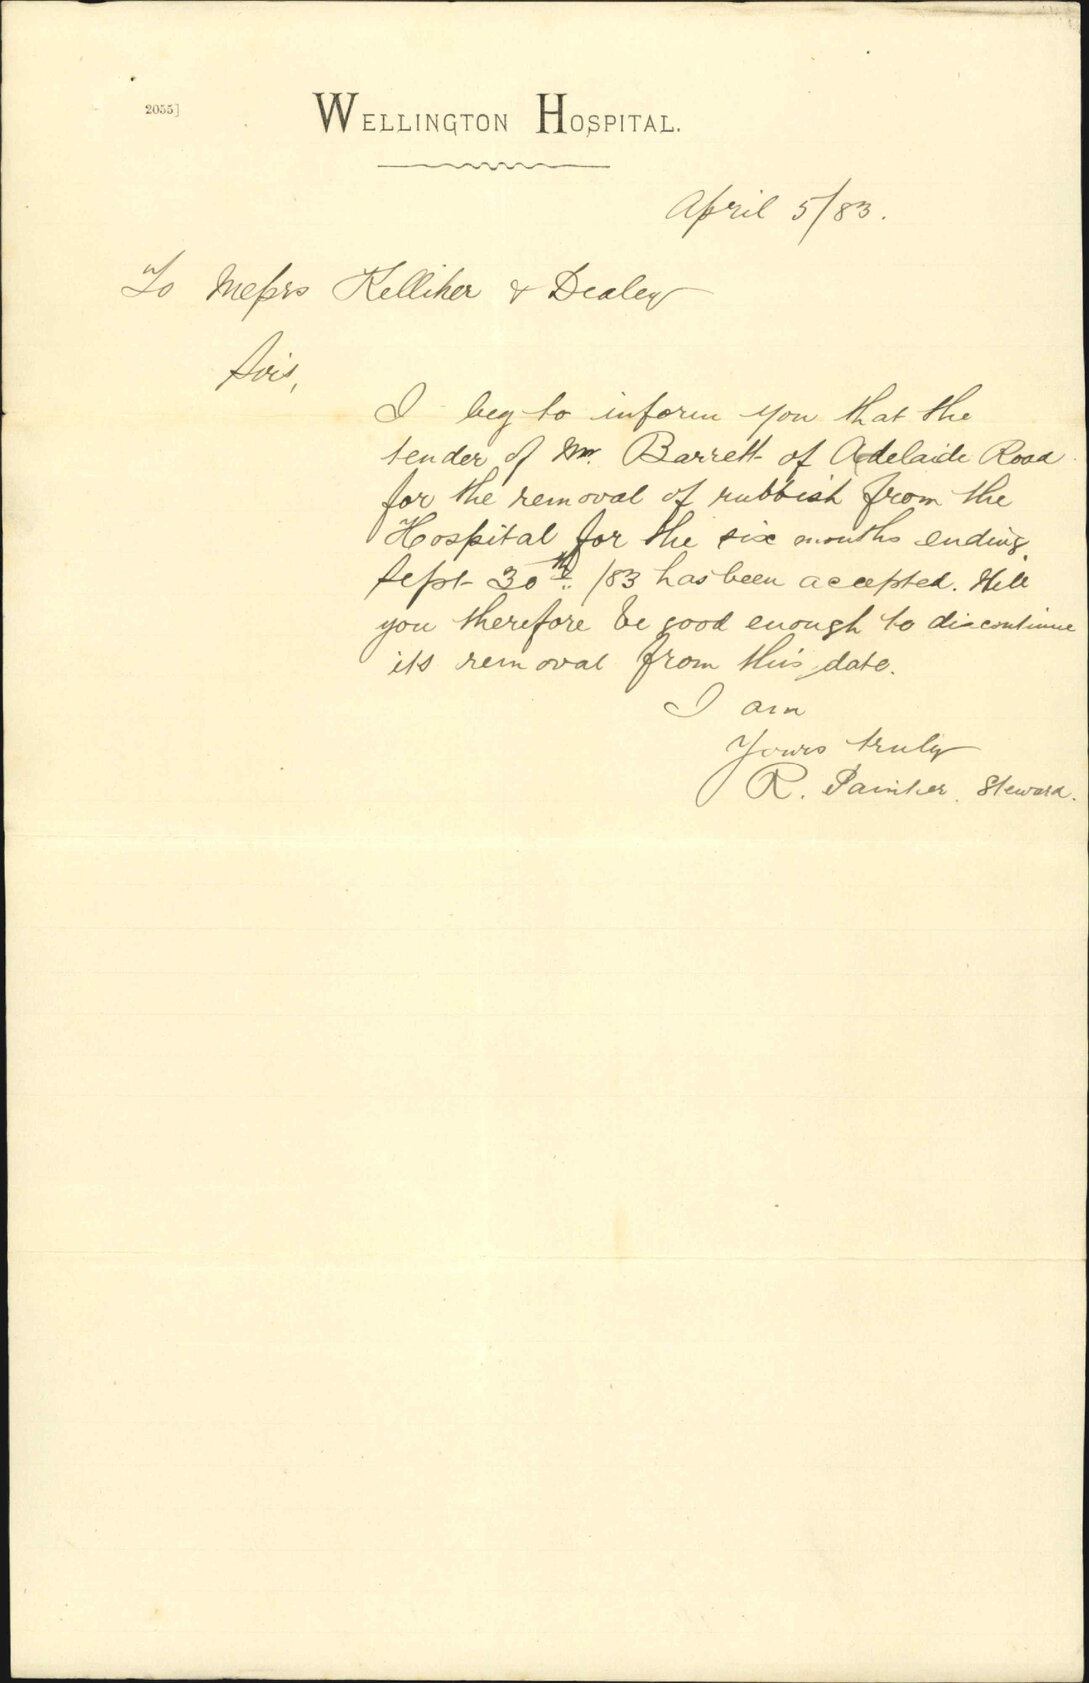 2055]
WELLINGTON HOSPITAL.
April 5/83.
To Messrs Kelliher & Dealey
Sirs,
I beg to inform you that the
tender of Mr. Barrett of Adelaide Road
for the removal of rubbish from the
Hospital for the six months ending
Sept 30th /83 has been accepted. Will
you therefore be good enough to discontinue
its removal from this date.
I am
Yours truly
R. Painter. Steward.